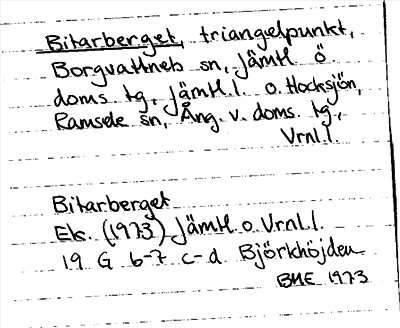 Bitarberget, triangelpunkt,
Borgvattnets sn, Jämtl ö
doms tg, Jämtl.l. o. Hocksjön,
Ramsele sn, Ång. v. doms. tg.,
Vrnl.l.
Bitarberget
Ek. (1973) Jämtl o. Vrnl.l.
19 G 6-7 c-d Björkhöjden
BME 1973